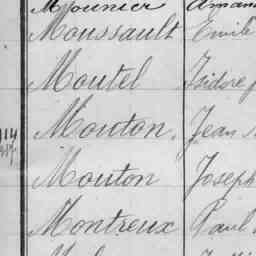 Mounier Aman
Moussault Emile
Moutel Isidore
114 Mouton, Jean
Mouton Joseph
Montreux Paul